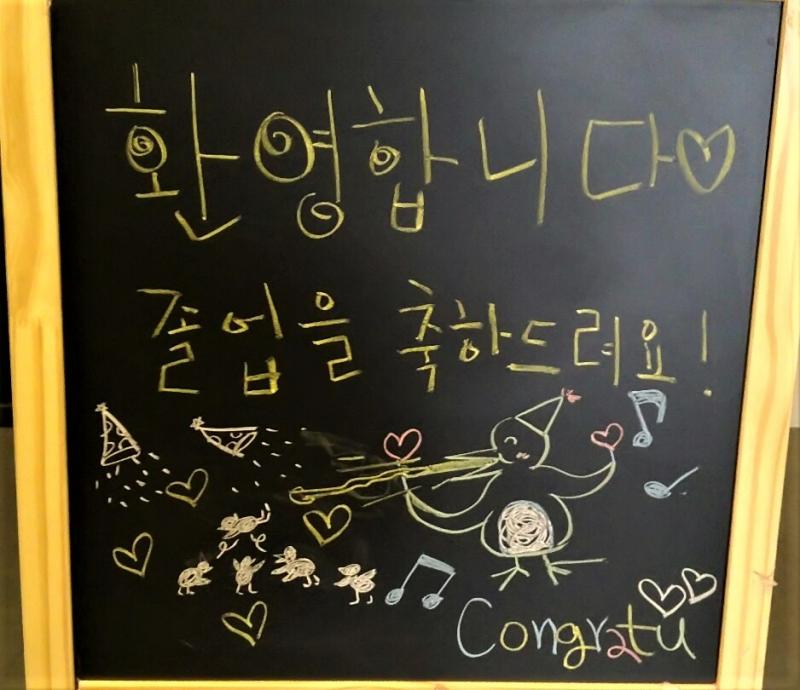 환영합니다♡
졸업을 축하드려요!
Congratu